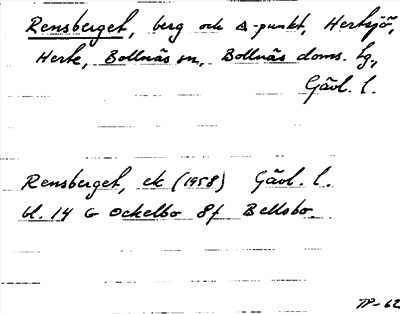 Rensberget, berg och Δ-punkt, Hertsjö,
Herte, Bollnäs sn, Bollnäs doms. hg.,
Gävl. l.
Rensberget, ek (1958) Gävl. l.
bl. 14 G Ockelbo 8f Bellsbo
TP-62